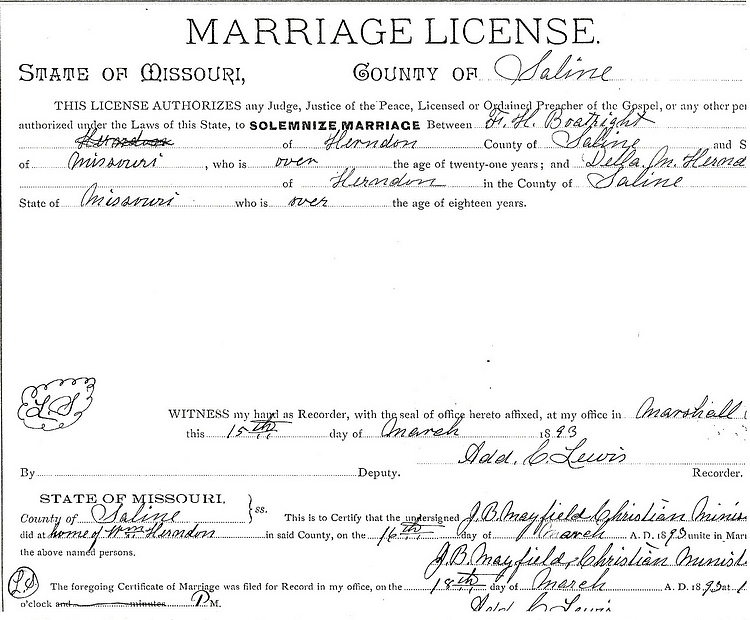 MARRIAGE LICENSE.
STATE OF MISSOURI, COUNTY OF Saline
THIS LICENSE AUTHORIZES any Judge, Justice of the Peace, Licensed or Ordained Preacher of the Gospel, or any other per
authorized under the Laws of this State, to SOLEMNIZE MARRIAGE Between H. Boatright
Herndon of Herndon County of Saline and S
of Missouri, who is over the age of twenty-one years; and Della M. Hernd
of Herndon in the County of Saline
State of Missouri who is over the age of eighteen years.
L S
WITNESS my hand as Recorder, with the seal of office hereto affixed, at my office in Marshall
this 15th day of March 1893
Add. C. Lewis
By Deputy. Recorder.
STATE OF MISSOURI,
County of Saline } ss. This is to Certify that the undersigned J. B. Mayfield Christian Minis
did at home of Wm Herndon in said County, on the 16th day of March A. D. 1893 unite in Mar
the above named persons. J. B. Mayfield, Christian Minist
L S The foregoing Certificate of Marriage was filed for Record in my office, on the 18th day of March A. D. 1893 at
o'clock and minutes P M. Add C Lewis